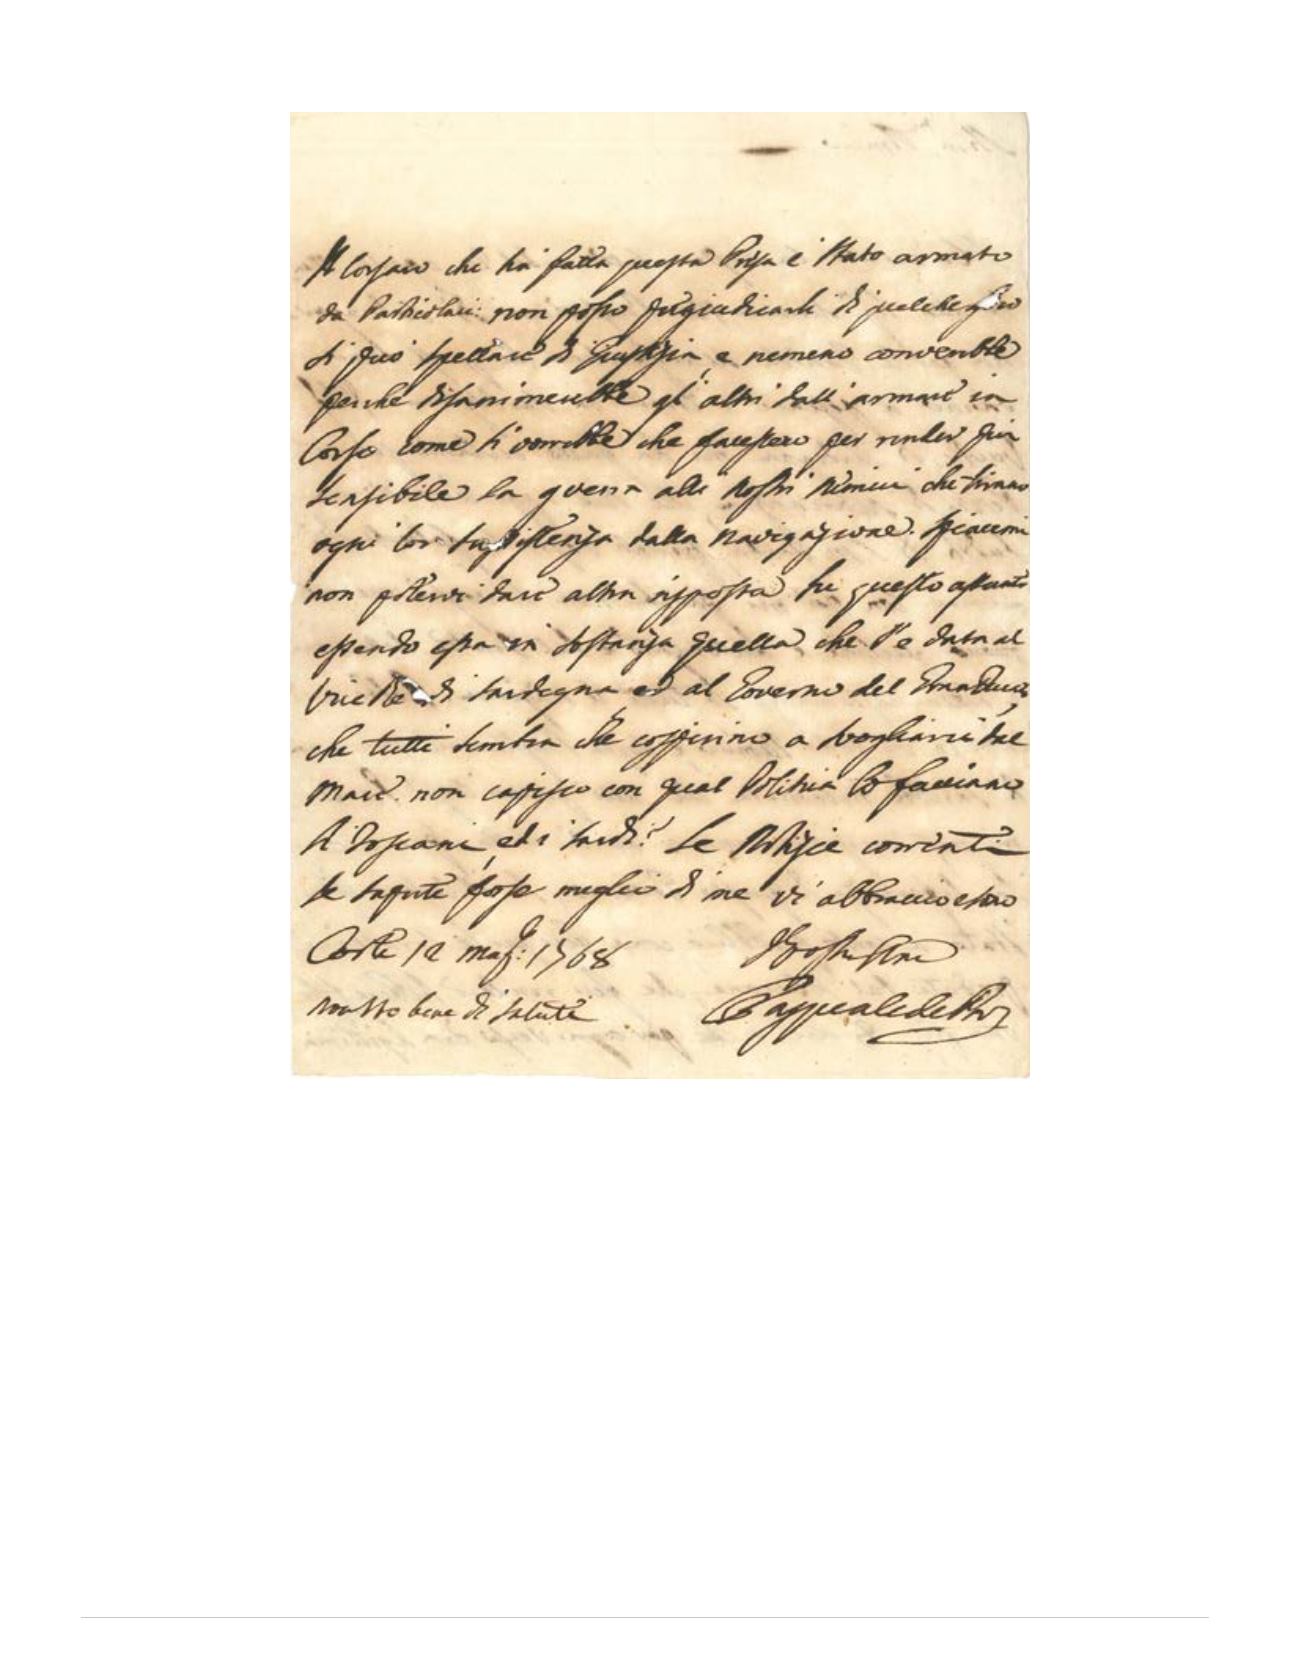 Il Corsaro che ha fatta questa Presa è stato armato
da Particolari: non posso pregiudicarli di quel che loro
li può spettare di Giustizia, e nemeno converebbe
perche disanimerebbe gl'altri dall'armare in
Corso come si vorrebbe che facessero per render più
sensibile la guerra alli nostri Nimici che tirano
ogni lor sussistenza dalla navigazione. Spiacemi
non potervi dare altra risposta su questo assunto
essendo essa in sostanza quella che s'è data al
Vice Re di Sardegna ed al Governo del Gran Duca,
che tutti sembra che cospirino a svogliarci dal
Mare. non capisco con qual Politica lo facciano
li Toscani, ed i Sardi? Le Notizie correnti
le sapete forse meglio di me vi abbraccio e sono
Corte 12 mag: 1768
non sto bene di salute
Pasquale de Paoli